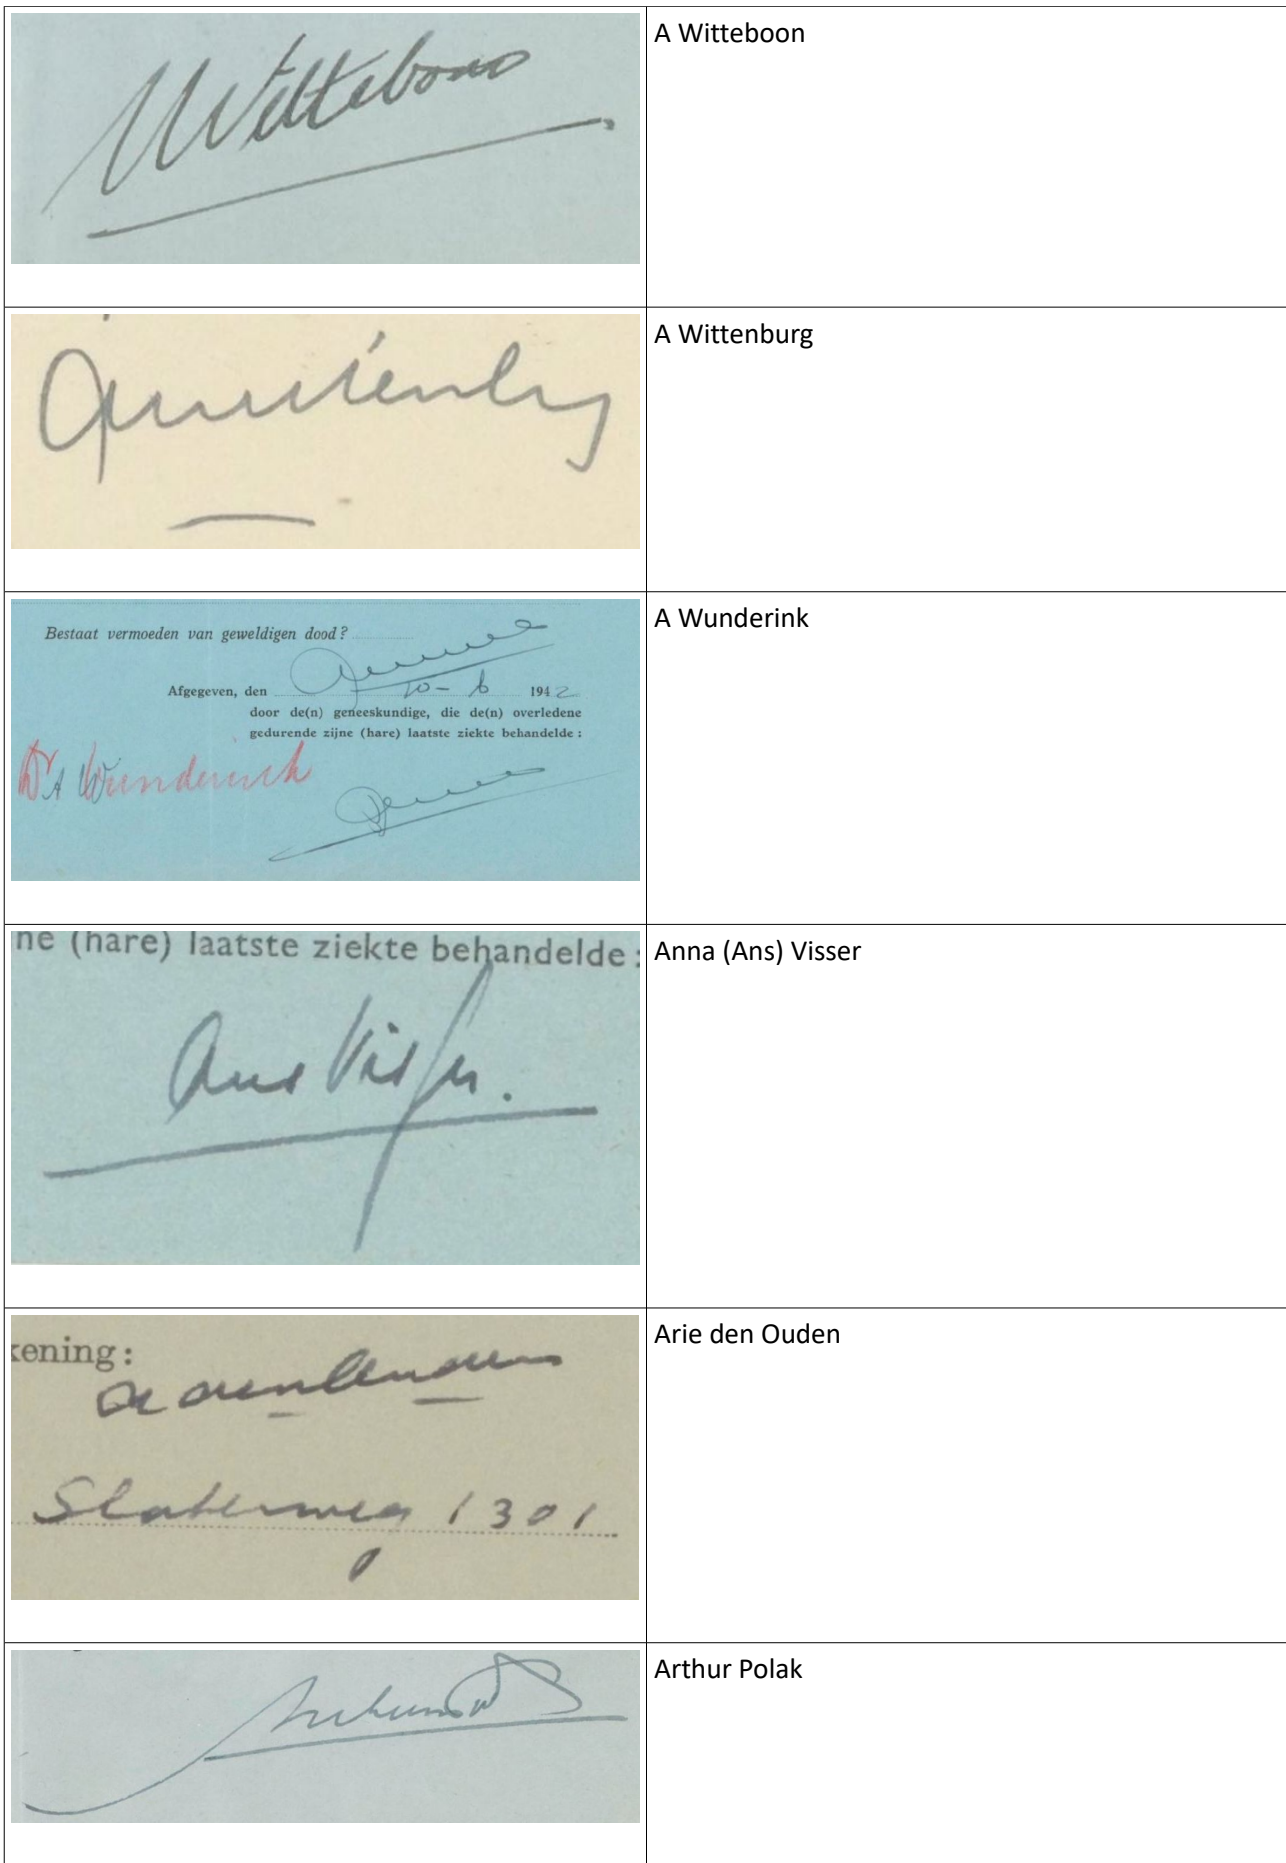 Witteboon
A Witteboon
A Wittenburg
Bestaat vermoeden van geweldigen dood?
Afgegeven, den 10-6 1942
door de(n) geneeskundige, die de(n) overledene
gedurende zijne (hare) laatste ziekte behandelde:
Dr A Wunderink
A Wunderink
ne (hare) laatste ziekte behandelde:
Ans Visser.
Anna (Ans) Visser
kening:
A den Ouden
1301
Arie den Ouden
Arthur Polak